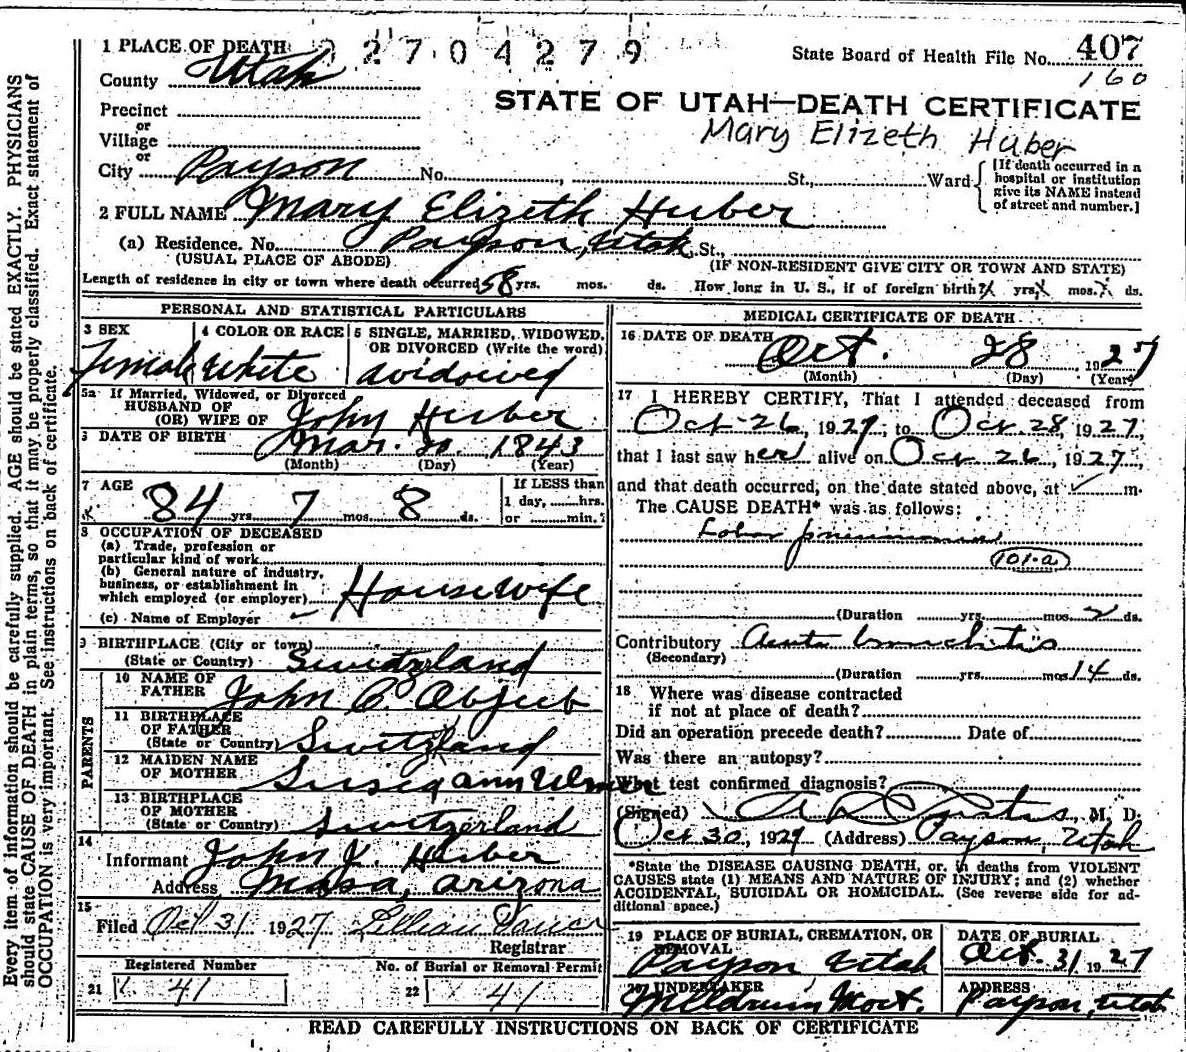 Every item of information should be carefully supplied. AGE should be stated EXACTLY. PHYSICIANS
should state CAUSE OF DEATH in plain terms, so that it may be properly classified. Exact statement of
OCCUPATION is very important. See instructions on back of certificate.
2704279
State Board of Health File No. 407
160
1 PLACE OF DEATH
County Utah
STATE OF UTAH—DEATH CERTIFICATE
Precinct
or
Village
Mary Elizeth Huber
or
City Payson No. , St., Ward
[If death occurred in a
hospital or institution
give its NAME instead
of street and number.]
2 FULL NAME Mary Elizeth Huber
(a) Residence. No. Payson, Utah St.,
(USUAL PLACE OF ABODE) (IF NON-RESIDENT GIVE CITY OR TOWN AND STATE)
Length of residence in city or town where death occurred 58 yrs. mos. ds. How long in U. S., if of foreign birth? yrs. mos. ds.
PERSONAL AND STATISTICAL PARTICULARS
3 SEX Female
4 COLOR OR RACE White
5 SINGLE, MARRIED, WIDOWED,
OR DIVORCED (Write the word)
Widowed
5a If Married, Widowed, or Divorced
HUSBAND OF
(OR) WIFE OF John Huber
6 DATE OF BIRTH Mar. 20. 1843
(Month) (Day) (Year)
7 AGE
84 yrs. 7 mos. 8 ds.
If LESS than
1 day, hrs.
or min.?
8 OCCUPATION OF DECEASED
(a) Trade, profession or
particular kind of work
(b) General nature of industry,
business, or establishment in
which employed (or employer) Housewife
(c) Name of Employer
9 BIRTHPLACE (City or town)
(State or Country) Switzerland
PARENTS
10 NAME OF
FATHER John C.
11 BIRTHPLACE
OF FATHER
(State or Country) Switzland
12 MAIDEN NAME
OF MOTHER
13 BIRTHPLACE
OF MOTHER
(State or Country) Switzerland
14
Informant John J. Huber
Address Masa, Arizona
15
Filed Oct 31 1927 Lillian
Registrar
Registered Number
21 41
No. of Burial or Removal Permit
22 41
MEDICAL CERTIFICATE OF DEATH
16 DATE OF DEATH
Oct. 28 1927
(Month) (Day) (Year)
17 I HEREBY CERTIFY, That I attended deceased from
Oct 26, 1927, to Oct 28, 1927,
that I last saw her alive on Oct 26, 1927,
and that death occurred, on the date stated above, at m.
The CAUSE DEATH* was as follows:
Lobar pneumonia
101-a
(Duration yrs. mos. 2 ds.
Contributory
(Secondary)
(Duration yrs. mos. 14 ds.
18 Where was disease contracted
if not at place of death?
Did an operation precede death? Date of
Was there an autopsy?
What test confirmed diagnosis?
(Signed) , M. D.
Oct 30, 1927 (Address) Payson, Utah
*State the DISEASE CAUSING DEATH, or, in deaths from VIOLENT
CAUSES state (1) MEANS AND NATURE OF INJURY; and (2) whether
ACCIDENTAL, SUICIDAL OR HOMICIDAL. (See reverse side for ad-
ditional space.)
19 PLACE OF BURIAL, CREMATION, OR
REMOVAL
Payson Utah
DATE OF BURIAL
Oct. 31 1927
20 UNDERTAKER
Mort.
ADDRESS
Payson, Utah
READ CAREFULLY INSTRUCTIONS ON BACK OF CERTIFICATE